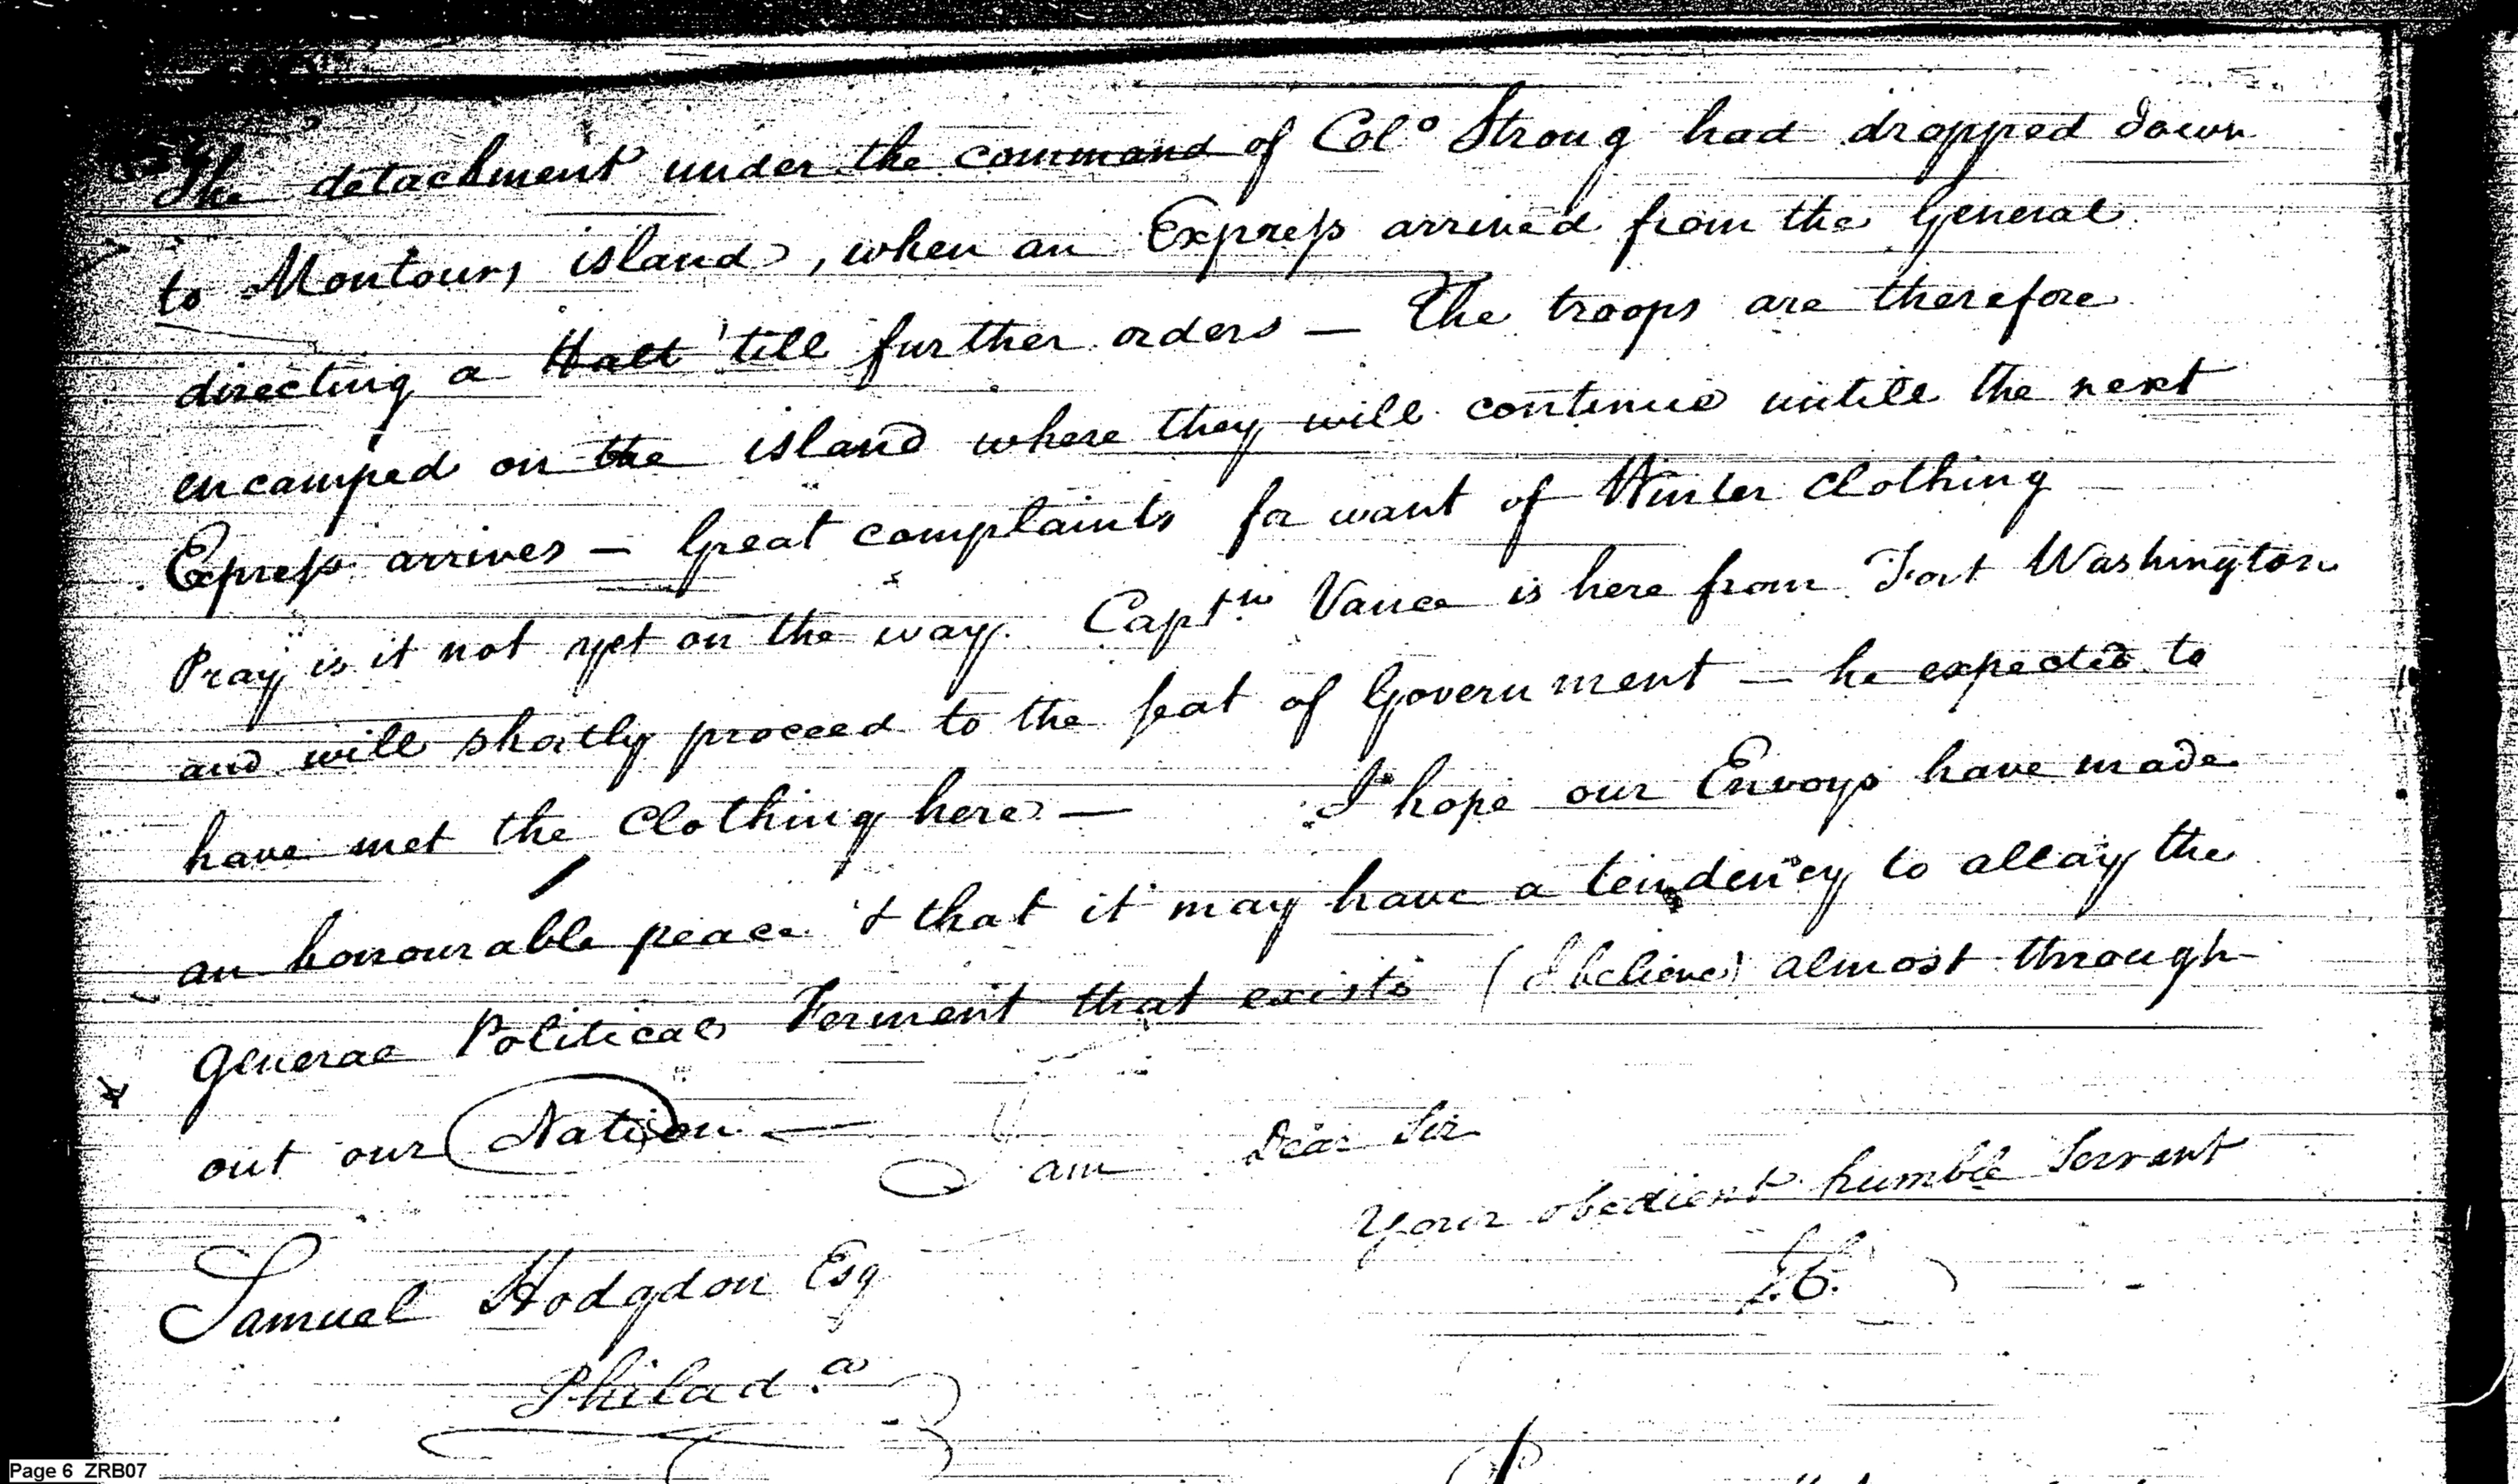 The detachment under the command of Colo Strong had dropped down
to Montours island, when an Express arrived from the General
directing a Halt 'till further orders — The troops are therefore
encamped on the island where they will continue untill the next
Express arrives — Great complaints for want of Winter Clothing —
Pray is it not yet on the way. Captn. Vance is here from Fort Washington
and will shortly proceed to the seat of Government — he expected to
have met the Clothing here — I hope our Envoys have made
an honourable peace & that it may have a tendency to allay the
general Political Ferment that exists (I believe) almost through
out our Nation —
I am Dear Sir
Your obedient humble Servant
Samuel Hodgdon Esq
Philada
Page 6 ZRB07